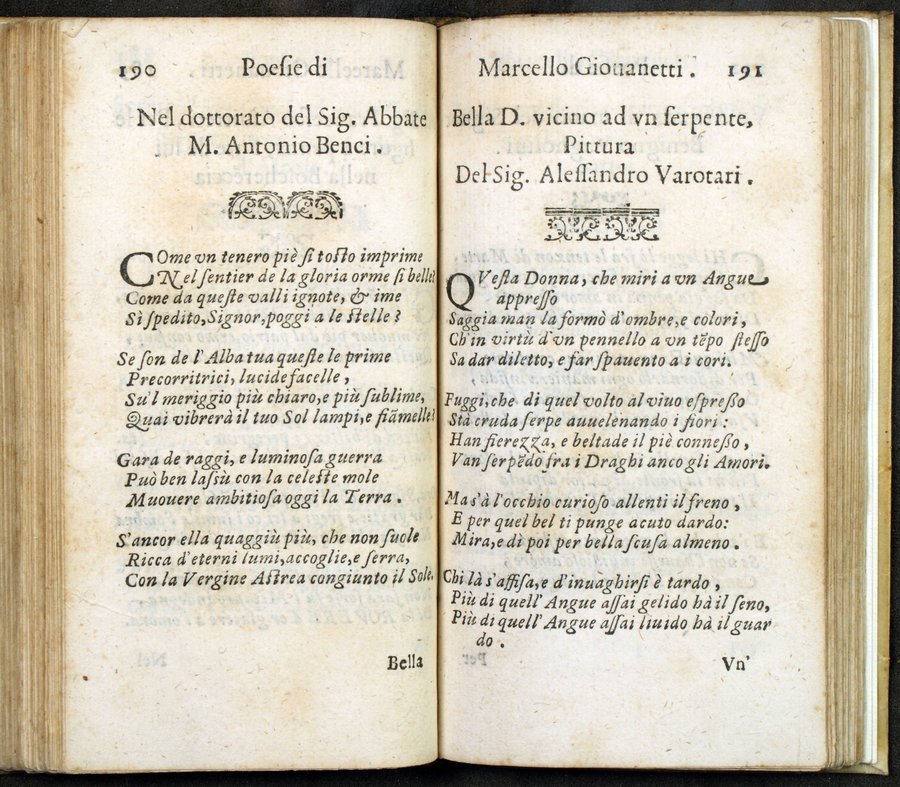 190 Poesie di
Nel dottorato del Sig. Abbate
M. Antonio Benci.
COme vn tenero piè ſi toſto imprime
Nel ſentier de la gloria orme ſi belle?
Come da queſte valli ignote, & ime
Si ſpedito, Signor, poggi a le ſtelle?
Se ſon de l'Alba tua queſte le prime
Precorritrici, lucide facelle,
Su'l meriggio più chiaro, e più ſublime,
Quai vibrerà il tuo Sol lampi, e fiãmelle?
Gara de raggi, e luminoſa guerra
Può ben laſsù con la celeſte mole
Muouere ambitioſa oggi la Terra.
S'ancor ella quaggiù più, che non ſuole
Ricca d'eterni lumi, accoglie, e ſerra,
Con la Vergine Aſtrea congiunto il Sole.
Bella
Marcello Giouanetti. 191
Bella D. vicino ad vn ſerpente,
Pittura
Del Sig. Aleſſandro Varotari.
QVeſta Donna, che miri a vn Angue
appreſſo
Saggia man la formò d'ombre, e colori,
Ch'in virtù d'vn pennello a vn tẽpo ſteſſo
Sa dar diletto, e far ſpauento a i cori.
Fuggi, che di quel volto al viuo eſpreſſo
Stà cruda ſerpe auuelenando i fiori:
Han fierezza, e beltade il piè conneſſo,
Van ſerpẽdo fra i Draghi anco gli Amori.
Ma s'à l'occhio curioſo allenti il freno,
E per quel bel ti punge acuto dardo:
Mira, e di poi per bella ſcuſa almeno.
Chi là s'affiſa, e d'inuaghirſi è tardo,
Più di quell'Angue aſſai gelido hà il ſeno,
Più di quell'Angue aſſai liuido hà il guar
do.
Vn'